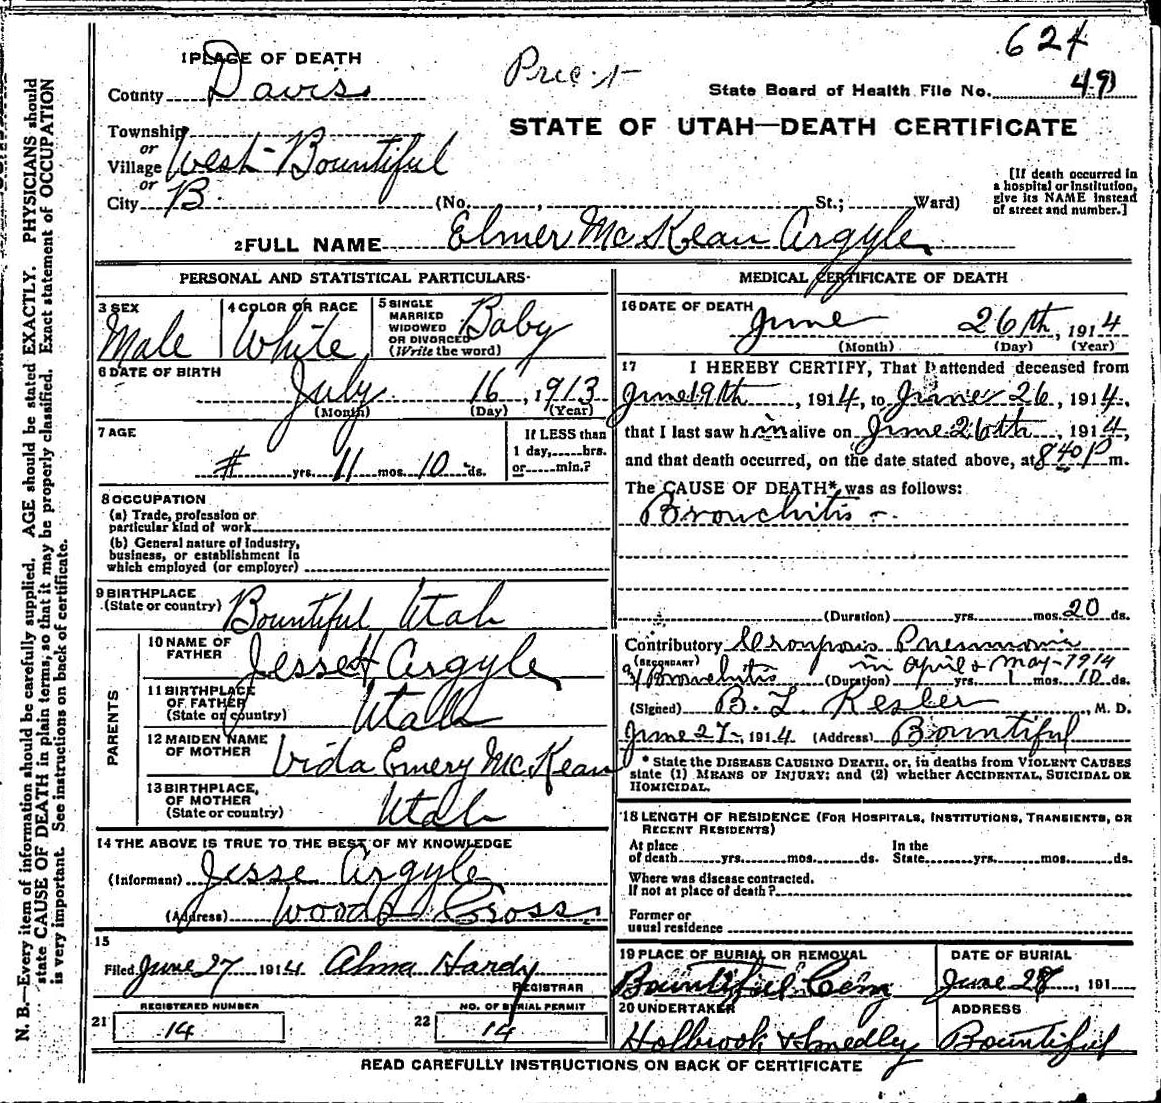 624
1 PLACE OF DEATH
County Davis
Prec. 1
State Board of Health File No. 49
Township
or
Village West Bountiful
or
City B.
STATE OF UTAH—DEATH CERTIFICATE
(No. , St.; Ward)
[If death occurred in
a hospital or institution,
give its NAME instead
of street and number.]
2 FULL NAME Elmer McKean Argyle
PERSONAL AND STATISTICAL PARTICULARS
3 SEX
Male
4 COLOR OR RACE
White
5 SINGLE
MARRIED
WIDOWED
OR DIVORCED
(Write the word)
Baby
6 DATE OF BIRTH
July 16, 1913
(Month) (Day) (Year)
7 AGE
# yrs. 11 mos. 10 ds.
If LESS than
1 day, hrs.
or min.?
8 OCCUPATION
(a) Trade, profession or
particular kind of work
(b) General nature of industry,
business, or establishment in
which employed (or employer)
9 BIRTHPLACE
(State or country) Bountiful Utah
PARENTS
10 NAME OF
FATHER Jesse H Argyle
11 BIRTHPLACE
OF FATHER
(State or country) Utah
12 MAIDEN NAME
OF MOTHER Vida Emery McKean
13 BIRTHPLACE,
OF MOTHER
(State or country) Utah
14 THE ABOVE IS TRUE TO THE BEST OF MY KNOWLEDGE
(Informant) Jesse Argyle
(Address) Woods Cross
15
Filed June 27 1914 Alma Hardy
REGISTRAR
REGISTERED NUMBER
21 14
NO. OF BURIAL PERMIT
22 14
MEDICAL CERTIFICATE OF DEATH
16 DATE OF DEATH
June 26th, 1914
(Month) (Day) (Year)
17 I HEREBY CERTIFY, That I attended deceased from
June 19th, 1914, to June 26, 1914,
that I last saw him alive on June 26th, 1914,
and that death occurred, on the date stated above, at 8 40 P m.
The CAUSE OF DEATH* was as follows:
Bronchitis
(Duration) yrs. mos. 20 ds.
Contributory Croupous Pneumonia
(SECONDARY) in April & May-1914
Bronchitis (Duration) yrs. 1 mos. 10 ds.
(Signed) B. L. Kesler, M. D.
June 27, 1914 (Address) Bountiful
* State the DISEASE CAUSING DEATH, or, in deaths from VIOLENT CAUSES
state (1) MEANS OF INJURY; and (2) whether ACCIDENTAL, SUICIDAL OR
HOMICIDAL.
18 LENGTH OF RESIDENCE (FOR HOSPITALS, INSTITUTIONS, TRANSIENTS, OR
RECENT RESIDENTS)
At place
of death yrs. mos. ds.
In the
State yrs. mos. ds.
Where was disease contracted.
If not at place of death?
Former or
usual residence
19 PLACE OF BURIAL OR REMOVAL
Bountiful Cem
DATE OF BURIAL
June 28, 191
20 UNDERTAKER
Holbrook & Smedley
ADDRESS
Bountiful
READ CAREFULLY INSTRUCTIONS ON BACK OF CERTIFICATE
N. B.—Every item of information should be carefully supplied. AGE should be stated EXACTLY. PHYSICIANS should
state CAUSE OF DEATH in plain terms, so that it may be properly classified. Exact statement of OCCUPATION
is very important. See instructions on back of certificate.